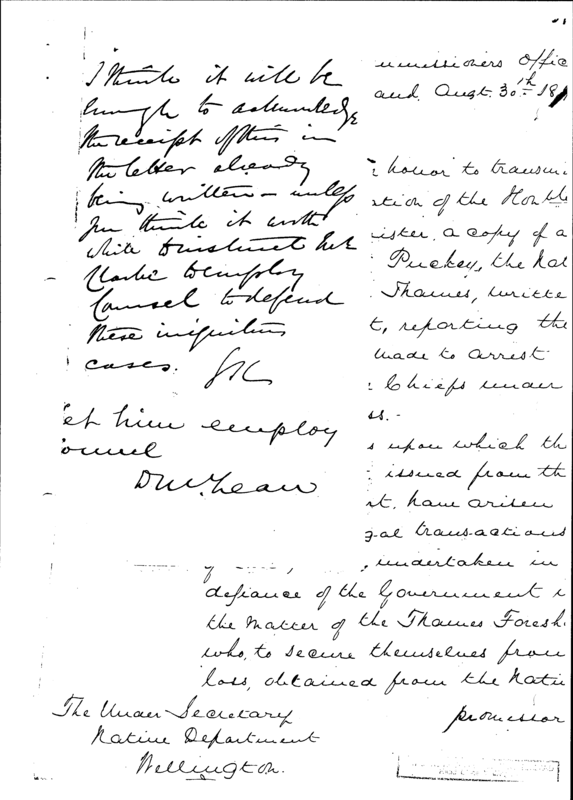 I think it will be
enough to acknowledge
the receipt of this in
the letter already
being written – unless
you think it worth
while to instruct Mr
Clarke to employ
Counsel to defend
these iniquitous
cases.
et him employ
ounsel
D McLean
mmissioners Offic
and Augt. 30th 18
honor to transmi
ation of the Honble
ister, a copy of a
Puckey, the Nat
Thames, writte
t, reporting the
made to arrest
Chiefs under
ss.-
s upon which th
issued from th
rt. have arisen
gal transactions
undertaken in
defiance of the Government i
the matter of the Thames Foresh
who, to secure themselves from
loss, obtained from the Nativ
promissor
The Under Secretary
Native Department
Wellington.